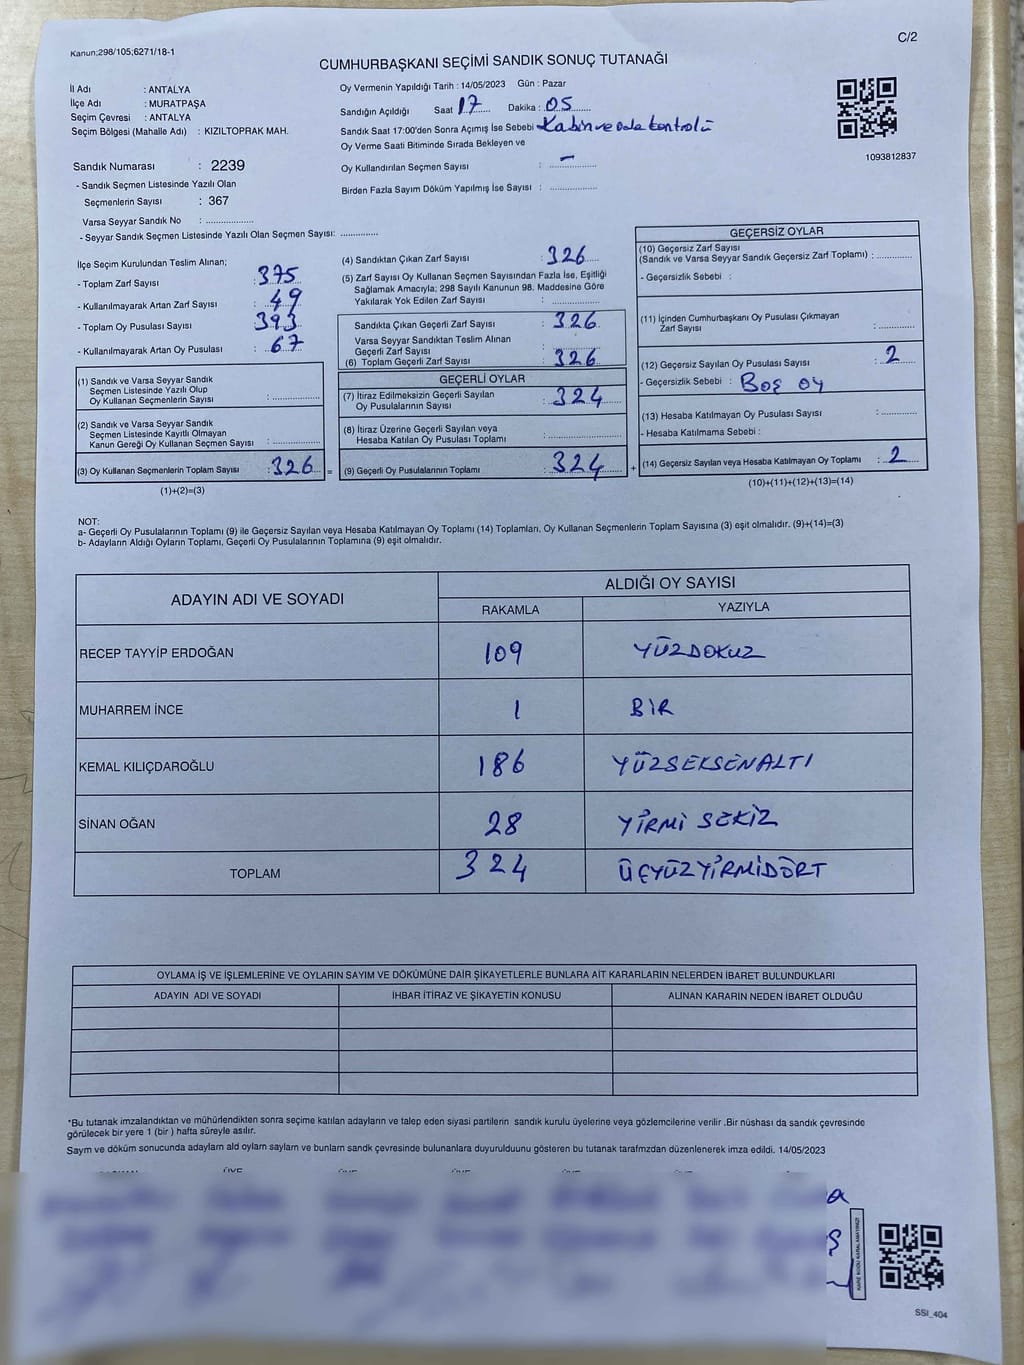 Kanun:298/105;6271/18-1
C/2
CUMHURBAŞKANI SEÇİMİ SANDIK SONUÇ TUTANAĞI
İl Adı : ANTALYA
İlçe Adı : MURATPAŞA
Seçim Çevresi : ANTALYA
Seçim Bölgesi (Mahalle Adı) : KIZILTOPRAK MAH.
Sandık Numarası : 2239
- Sandık Seçmen Listesinde Yazılı Olan
Seçmenlerin Sayısı : 367
Varsa Seyyar Sandık No : ................
- Seyyar Sandık Seçmen Listesinde Yazılı Olan Seçmen Sayısı: .............
Oy Vermenin Yapıldığı Tarih : 14/05/2023 Gün : Pazar
Sandığın Açıldığı Saat 17 Dakika : 05
Sandık Saat 17:00'den Sonra Açımış İse Sebebi Kabin ve oda kontrolü
Oy Verme Saati Bitiminde Sırada Bekleyen ve
Oy Kullandırılan Seçmen Sayısı : -
Birden Fazla Sayım Döküm Yapılmış İse Sayısı : ................
1093812837
İlçe Seçim Kurulundan Teslim Alınan;
- Toplam Zarf Sayısı : 375
- Kullanılmayarak Artan Zarf Sayısı : 49
- Toplam Oy Pusulası Sayısı : 393
- Kullanılmayarak Artan Oy Pusulası : 67
(1) Sandık ve Varsa Seyyar Sandık
Seçmen Listesinde Yazılı Olup
Oy Kullanan Seçmenlerin Sayısı : ................
(2) Sandık ve Varsa Seyyar Sandık
Seçmen Listesinde Kayıtlı Olmayan
Kanun Gereği Oy Kullanan Seçmen Sayısı : ................
(3) Oy Kullanan Seçmenlerin Toplam Sayısı : 326 =
(1)+(2)=(3)
(4) Sandıktan Çıkan Zarf Sayısı : 326
(5) Zarf Sayısı Oy Kullanan Seçmen Sayısından Fazla İse, Eşitliği
Sağlamak Amacıyla; 298 Sayılı Kanunun 98. Maddesine Göre
Yakılarak Yok Edilen Zarf Sayısı : ................
Sandıkta Çıkan Geçerli Zarf Sayısı : 326
Varsa Seyyar Sandıktan Teslim Alınan
Geçerli Zarf Sayısı : ................
(6) Toplam Geçerli Zarf Sayısı : 326
GEÇERLİ OYLAR
(7) İtiraz Edilmeksizin Geçerli Sayılan
Oy Pusulalarının Sayısı : 324
(8) İtiraz Üzerine Geçerli Sayılan veya
Hesaba Katılan Oy Pusulası Toplamı : ................
(9) Geçerli Oy Pusulalarının Toplamı : 324 +
GEÇERSİZ OYLAR
(10) Geçersiz Zarf Sayısı
(Sandık ve Varsa Seyyar Sandık Geçersiz Zarf Toplamı) : ............
- Geçersizlik Sebebi :
(11) İçinden Cumhurbaşkanı Oy Pusulası Çıkmayan
Zarf Sayısı : ............
(12) Geçersiz Sayılan Oy Pusulası Sayısı : 2
- Geçersizlik Sebebi : Boş oy
(13) Hesaba Katılmayan Oy Pusulası Sayısı : ............
- Hesaba Katılmama Sebebi :
(14) Geçersiz Sayılan veya Hesaba Katılmayan Oy Toplamı : 2
(10)+(11)+(12)+(13)=(14)
NOT:
a- Geçerli Oy Pusulalarının Toplamı (9) ile Geçersiz Sayılan veya Hesaba Katılmayan Oy Toplamı (14) Toplamları, Oy Kullanan Seçmenlerin Toplam Sayısına (3) eşit olmalıdır. (9)+(14)=(3)
b- Adayların Aldığı Oyların Toplamı, Geçerli Oy Pusulalarının Toplamına (9) eşit olmalıdır.
ADAYIN ADI VE SOYADI ALDIĞI OY SAYISI
RAKAMLA YAZIYLA
RECEP TAYYİP ERDOĞAN 109 YÜZDOKUZ
MUHARREM İNCE 1 BİR
KEMAL KILIÇDAROĞLU 186 YÜZSEKSENALTI
SİNAN OĞAN 28 YİRMİ SEKİZ
TOPLAM 324 ÜÇYÜZYİRMİDÖRT
OYLAMA İŞ VE İŞLEMLERİNE VE OYLARIN SAYIM VE DÖKÜMÜNE DAİR ŞİKAYETLERLE BUNLARA AİT KARARLARIN NELERDEN İBARET BULUNDUKLARI
ADAYIN ADI VE SOYADI İHBAR İTİRAZ VE ŞİKAYETİN KONUSU ALINAN KARARIN NEDEN İBARET OLDUĞU
*Bu tutanak imzalandıktan ve mühürlendikten sonra seçime katılan adayların ve talep eden siyasi partilerin sandık kurulu üyelerine veya gözlemcilerine verilir .Bir nüshası da sandık çevresinde
görülecek bir yere 1 (bir ) hafta süreyle asılır.
Saym ve döküm sonucunda adayların ald oyların sayları ve bunların sandk çevresinde bulunanlara duyurulduunu gösteren bu tutanak tarafmzdan düzenlenerek imza edildi. 14/05/2023
SSI_404